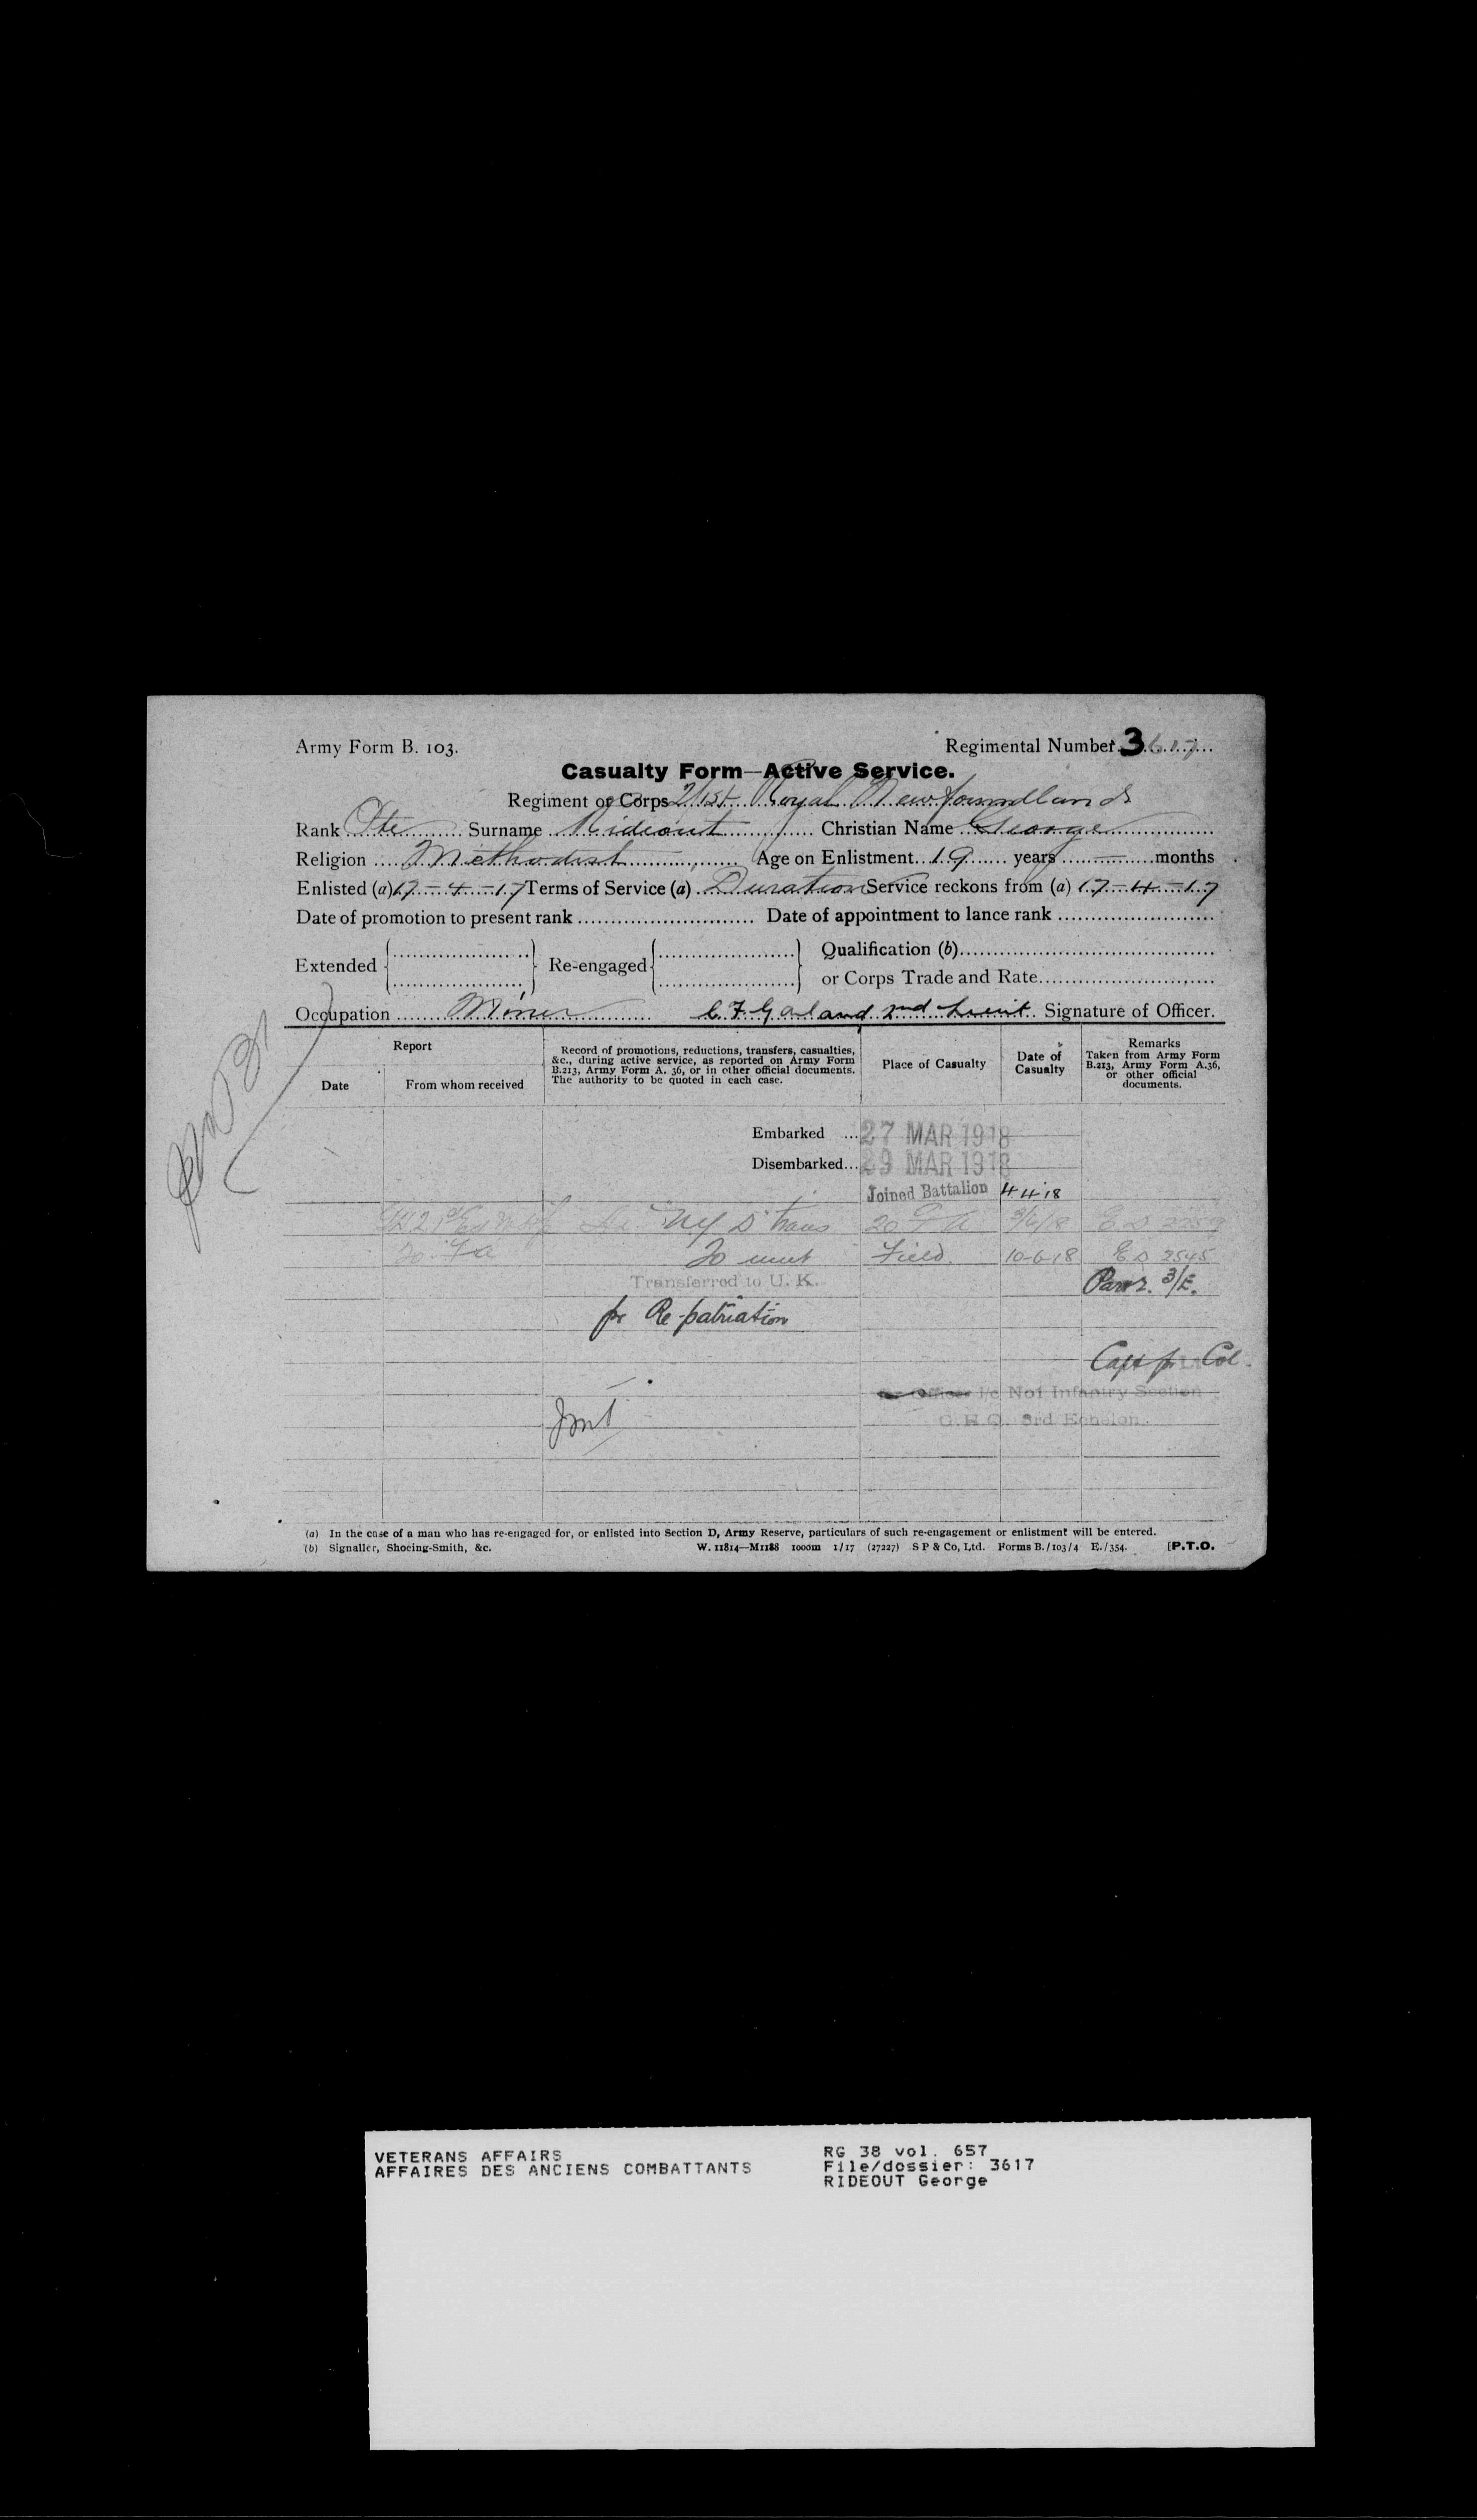 Army Form B. 103.
Regimental Number 3617
Casualty Form—Active Service.
Regiment or Corps 2/1st Royal Newfoundlands
Rank Pte Surname Rideout Christian Name George
Religion Methodist Age on Enlistment 19 years — months
Enlisted (a) 17-4-17 Terms of Service (a) Duration Service reckons from (a) 17-4-17
Date of promotion to present rank Date of appointment to lance rank
Extended Re-engaged Qualification (b)
or Corps Trade and Rate
Occupation Miner C F Garland 2nd Lieut. Signature of Officer.
Report
Date From whom received
Record of promotions, reductions, transfers, casualties, &c., during active service, as reported on Army Form B.213, Army Form A. 36, or in other official documents. The authority to be quoted in each case.
Place of Casualty
Date of Casualty
Remarks Taken from Army Form B.213, Army Form A.36, or other official documents.
Embarked ... 27 MAR 1918
Disembarked... 29 MAR 1918
Joined Battalion 4 4 18
N Y D trans 20 F A 9/6/18 E D
20 Fa To unit Field 10-6-18 E D 2545
Transferred to U. K.
for Re-patriation
3/E.
Capt for Col.
Officer i/c No1 Infantry Section
G.H.Q. 3rd Echelon.
(a) In the case of a man who has re-engaged for, or enlisted into Section D, Army Reserve, particulars of such re-engagement or enlistment will be entered.
(b) Signaller, Shoeing-Smith, &c. W. 11814—M1188 1000m 1/17 (27227) S P & Co, Ltd. Forms B./103/4 E./354. [P.T.O.
VETERANS AFFAIRS
AFFAIRES DES ANCIENS COMBATTANTS
RG 38 vol. 657
File/dossier: 3617
RIDEOUT George